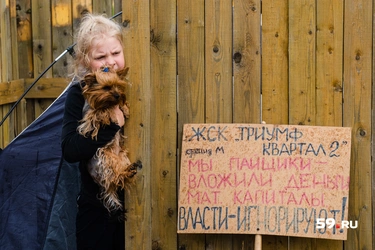 "ЖСК ТРИУМФ
КВАРТАЛ 2"
МЫ ПАЙЩИКИ-
ВЛОЖИЛИ ДЕНЬГИ
МАТ КАПИТАЛЫ
ВЛАСТИ-ИГНОРИРУЮТ!
59.RU